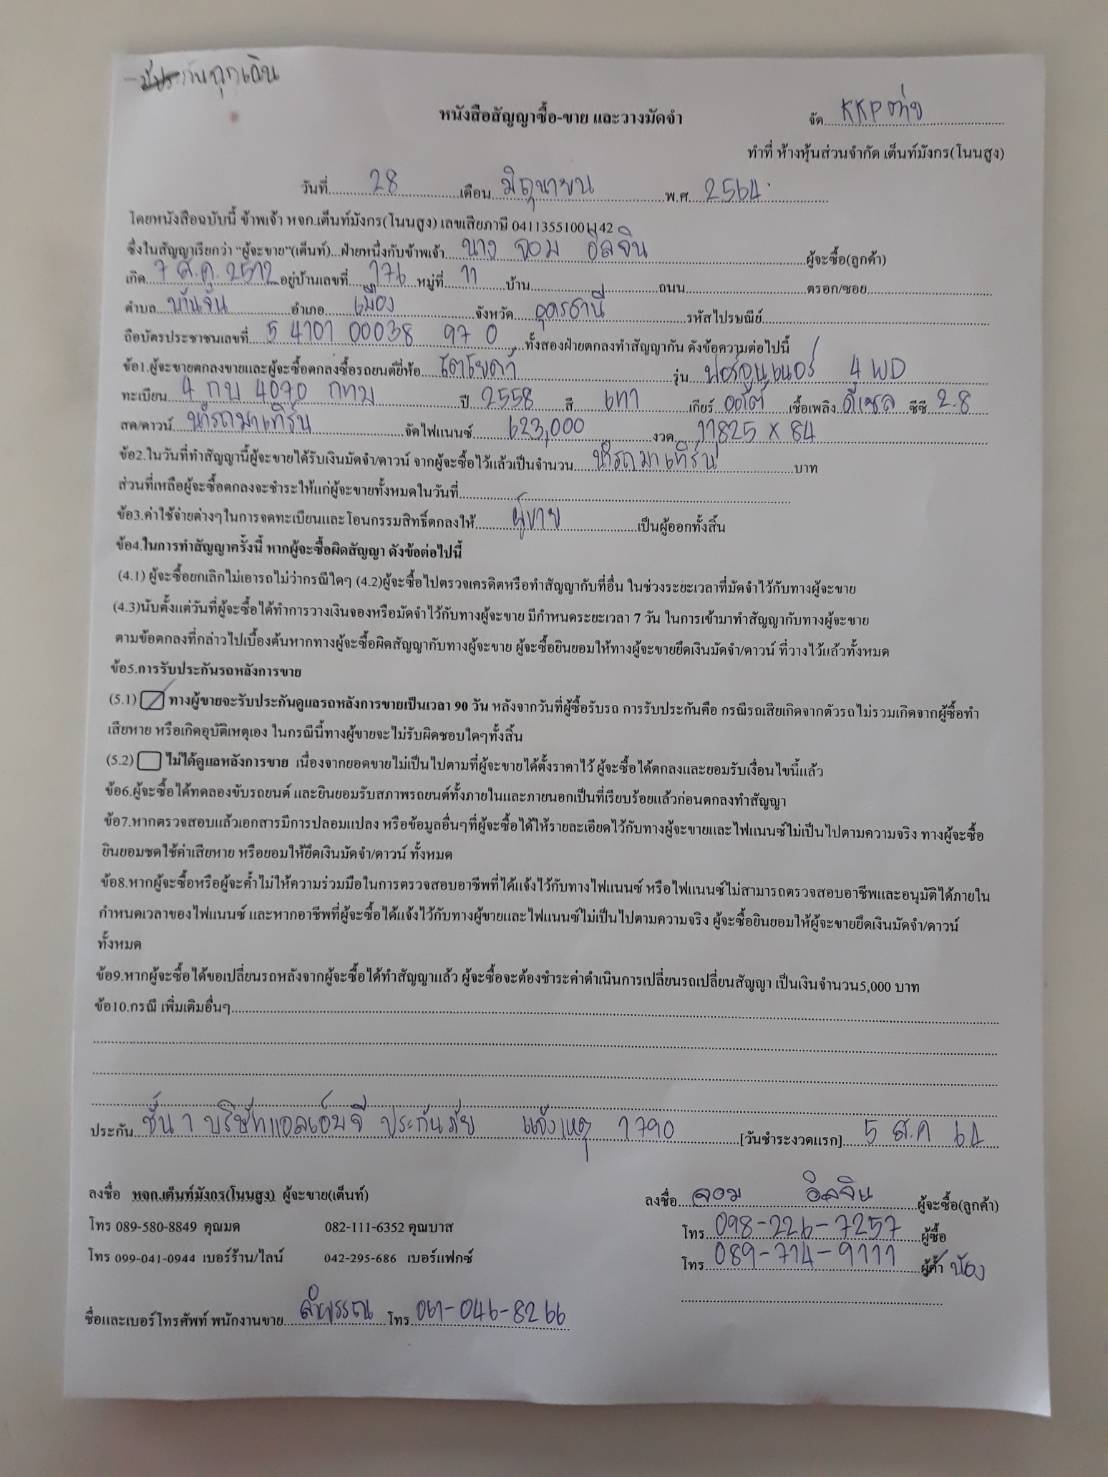 -มีประกันฉุกเฉิน
หนังสือสัญญาซื้อ-ขาย และวางมัดจำ
จัด KKP
ทำที่ ห้างหุ้นส่วนจำกัด เต็นท์มังกร(โนนสูง)
วันที่ 28 เดือน มิถุนายน พ.ศ. 2564
โดยหนังสือฉบับนี้ ข้าพเจ้า หจก.เต็นท์มังกร(โนนสูง) เลขเสียภาษี 0413551001142
ซึ่งในสัญญาเรียกว่า "ผู้จะขาย"(เต็นท์)...ฝ่ายหนึ่งกับข้าพเจ้า นาง จอม อิลจิน ผู้จะซื้อ(ลูกค้า)
เกิด 7 ส.ค. 2512 อยู่บ้านเลขที่ 176 หมู่ที่ 11 บ้าน ถนน ตรอก/ซอย
ตำบล นาแจ้ง อำเภอ เมือง จังหวัด อุดรธานี รหัสไปรษณีย์
ถือบัตรประชาชนเลขที่ 5 4101 00038 97 0 ทั้งสองฝ่ายตกลงทำสัญญากัน ดังข้อความต่อไปนี้
ข้อ1.ผู้จะขายตกลงขายและผู้จะซื้อตกลงซื้อรถยนต์ยี่ห้อ โตโยต้า รุ่น ฟอร์จูนเนอร์ 4 WD
ทะเบียน 4 กบ 4070 กทม ปี 2558 สี เทา เกียร์ ออโต้ เชื้อเพลิง ดีเซล ซีซี 2.8
สด/ดาวน์ นำรถมาเทิร์น จัดไฟแนนซ์ 623,000 งวด 11825 x 84
ข้อ2.ในวันที่ทำสัญญานี้ผู้จะขายได้รับเงินมัดจำ/ดาวน์ จากผู้จะซื้อไว้แล้วเป็นจำนวน นำรถมาเทิร์น บาท
ส่วนที่เหลือผู้จะซื้อตกลงจะชำระให้แก่ผู้จะขายทั้งหมดในวันที่
ข้อ3.ค่าใช้จ่ายต่างๆในการจดทะเบียนและโอนกรรมสิทธิ์ตกลงให้ ผู้ขาย เป็นผู้ออกทั้งสิ้น
ข้อ4.ในการทำสัญญาครั้งนี้ หากผู้จะซื้อผิดสัญญา ดังข้อต่อไปนี้
(4.1) ผู้จะซื้อยกเลิกไม่เอารถไม่ว่ากรณีใดๆ (4.2)ผู้จะซื้อไปตรวจเครดิตหรือทำสัญญากับที่อื่น ในช่วงระยะเวลาที่มัดจำไว้กับทางผู้จะขาย
(4.3)นับตั้งแต่วันที่ผู้จะซื้อได้ทำการวางเงินจองหรือมัดจำไว้กับทางผู้จะขาย มีกำหนดระยะเวลา 7 วัน ในการเข้ามาทำสัญญากับทางผู้จะขาย
ตามข้อตกลงที่กล่าวไปเบื้องต้นหากทางผู้จะซื้อผิดสัญญากับทางผู้จะขาย ผู้จะซื้อยินยอมให้ทางผู้จะขายยึดเงินมัดจำ/ดาวน์ ที่วางไว้แล้วทั้งหมด
ข้อ5.การรับประกันรถหลังการขาย
(5.1) ทางผู้ขายจะรับประกันดูแลรถหลังการขายเป็นเวลา 90 วัน หลังจากวันที่ผู้ซื้อรับรถ การรับประกันคือ กรณีรถเสียเกิดจากตัวรถไม่รวมเกิดจากผู้ซื้อทำ
เสียหาย หรือเกิดอุบัติเหตุเอง ในกรณีนี้ทางผู้ขายจะไม่รับผิดชอบใดๆทั้งสิ้น
(5.2) ไม่ได้ดูแลหลังการขาย เนื่องจากยอดขายไม่เป็นไปตามที่ผู้จะขายได้ตั้งราคาไว้ ผู้จะซื้อได้ตกลงและยอมรับเงื่อนไขนี้แล้ว
ข้อ6.ผู้จะซื้อได้ทดลองขับรถยนต์ และยินยอมรับสภาพรถยนต์ทั้งภายในและภายนอกเป็นที่เรียบร้อยแล้วก่อนตกลงทำสัญญา
ข้อ7.หากตรวจสอบแล้วเอกสารมีการปลอมแปลง หรือข้อมูลอื่นๆที่ผู้จะซื้อได้ให้รายละเอียดไว้กับทางผู้จะขายและไฟแนนซ์ไม่เป็นไปตามความจริง ทางผู้จะซื้อ
ยินยอมชดใช้ค่าเสียหาย หรือยอมให้ยึดเงินมัดจำ/ดาวน์ ทั้งหมด
ข้อ8.หากผู้จะซื้อหรือผู้จะค้ำไม่ให้ความร่วมมือในการตรวจสอบอาชีพที่ได้แจ้งไว้กับทางไฟแนนซ์ หรือไฟแนนซ์ไม่สามารถตรวจสอบอาชีพและอนุมัติได้ภายใน
กำหนดเวลาของไฟแนนซ์ และหากอาชีพที่ผู้จะซื้อได้แจ้งไว้กับทางผู้ขายและไฟแนนซ์ไม่เป็นไปตามความจริง ผู้จะซื้อยินยอมให้ผู้จะขายยึดเงินมัดจำ/ดาวน์
ทั้งหมด
ข้อ9.หากผู้จะซื้อได้ขอเปลี่ยนรถหลังจากผู้จะซื้อได้ทำสัญญาแล้ว ผู้จะซื้อจะต้องชำระค่าดำเนินการเปลี่ยนรถเปลี่ยนสัญญา เป็นเงินจำนวน5,000 บาท
ข้อ10.กรณี เพิ่มเติมอื่นๆ
ประกัน ชั้น 1 บริษัทแอลเอ็มจี ประกันภัย แจ้งเหตุ 1790 [วันชำระงวดแรก] 5 ส.ค 64
ลงชื่อ หจก.เต็นท์มังกร(โนนสูง) ผู้จะขาย(เต็นท์)
ลงชื่อ จอม อิลจิน ผู้จะซื้อ(ลูกค้า)
โทร 089-580-8849 คุณมด 082-111-6352 คุณบาส
โทร 098-226-7257 ผู้ซื้อ
โทร 099-041-0944 เบอร์ร้าน/ไลน์ 042-295-686 เบอร์แฟกซ์
โทร 089-714-9111 ผู้ค้ำ น้อง
ชื่อและเบอร์โทรศัพท์ พนักงานขาย ลำพรรณ โทร 061-046-8266